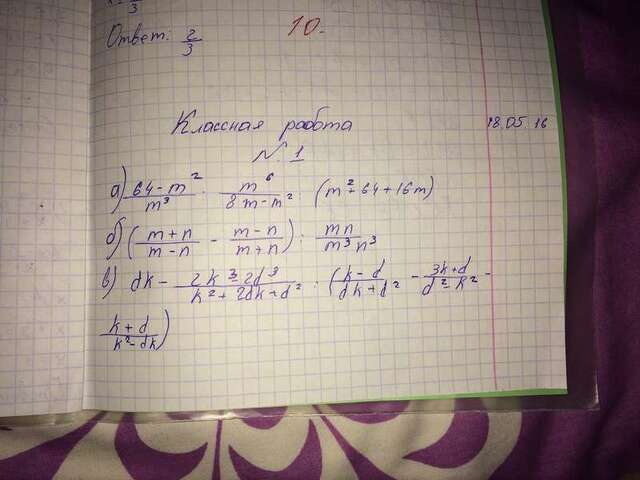 3
Ответ: 2/3
10.
Классная работа
18.05.16
№ 1
а) (64-m²)/m³ · m⁶/(8m-m²) : (m²+64+16m)
б) ((m+n)/(m-n) - (m-n)/(m+n)) : mn/(m³n³)
в) dk - (2k³-2d³)/(k²+2dk+d²) · ((k-d)/(dk+d²) - (3k+d)/(d²-k²) -
(k+d)/(k²-dk))